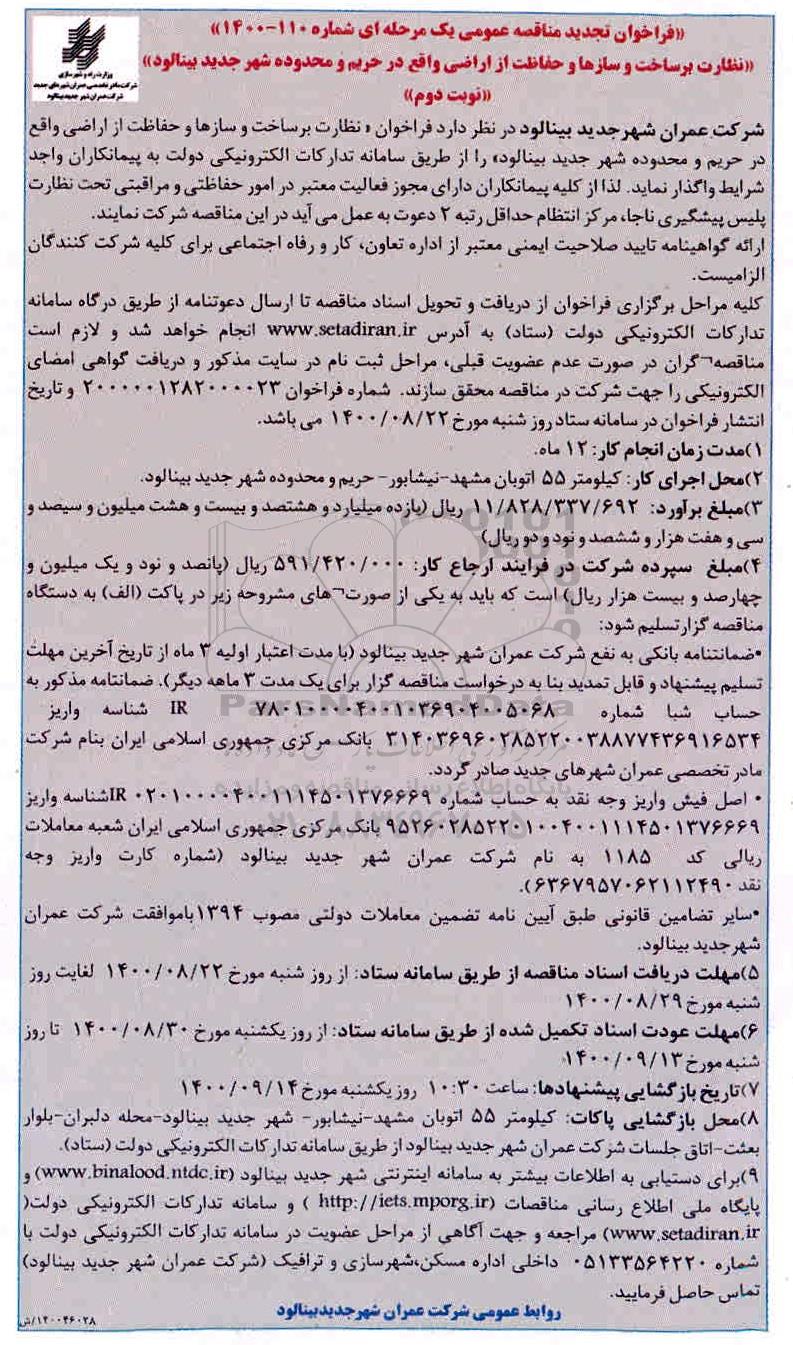 «فراخوان تجدید مناقصه عمومی یک مرحله ای شماره ۱۱۰-۱۴۰۰»
«نظارت برساخت و سازها و حفاظت از اراضی واقع در حریم و محدوده شهر جدید بینالود»
«نوبت دوم»
وزارت راه و شهرسازی
شرکت مادر تخصصی عمران شهرهای جدید
شرکت عمران شهر جدید بینالود
شرکت عمران شهرجدید بینالود در نظر دارد فراخوان « نظارت برساخت و سازها و حفاظت از اراضی واقع
در حریم و محدوده شهر جدید بینالود» را از طریق سامانه تدارکات الکترونیکی دولت به پیمانکاران واجد
شرایط واگذار نماید. لذا از کلیه پیمانکاران دارای مجوز فعالیت معتبر در امور حفاظتی و مراقبتی تحت نظارت
پلیس پیشگیری ناجا، مرکز انتظام حداقل رتبه ۲ دعوت به عمل می آید در این مناقصه شرکت نمایند.
ارائه گواهینامه تایید صلاحیت ایمنی معتبر از اداره تعاون، کار و رفاه اجتماعی برای کلیه شرکت کنندگان
الزامیست.
کلیه مراحل برگزاری فراخوان از دریافت و تحویل اسناد مناقصه تا ارسال دعوتنامه از طریق درگاه سامانه
تدارکات الکترونیکی دولت (ستاد) به آدرس www.setadiran.ir انجام خواهد شد و لازم است
مناقصه¬گران در صورت عدم عضویت قبلی، مراحل ثبت نام در سایت مذکور و دریافت گواهی امضای
الکترونیکی را جهت شرکت در مناقصه محقق سازند. شماره فراخوان ۲۰۰۰۰۰۱۲۸۲۰۰۰۰۲۳ و تاریخ
انتشار فراخوان در سامانه ستاد روز شنبه مورخ ۱۴۰۰/۰۸/۲۲ می باشد.
۱)مدت زمان انجام کار: ۱۲ ماه.
۲)محل اجرای کار: کیلومتر ۵۵ اتوبان مشهد-نیشابور- حریم و محدوده شهر جدید بینالود.
۳)مبلغ برآورد: ۱۱/۸۲۸/۳۳۷/۶۹۲ ریال (یازده میلیارد و هشتصد و بیست و هشت میلیون و سیصد و
سی و هفت هزار و ششصد و نود و دو ریال)
۴)مبلغ سپرده شرکت در فرایند ارجاع کار: ۵۹۱/۴۲۰/۰۰۰ ریال (پانصد و نود و یک میلیون و
چهارصد و بیست هزار ریال) است که باید به یکی از صورت¬های مشروحه زیر در پاکت (الف) به دستگاه
مناقصه گزارتسلیم شود:
•ضمانتنامه بانکی به نفع شرکت عمران شهر جدید بینالود (با مدت اعتبار اولیه ۳ ماه از تاریخ آخرین مهلت
تسلیم پیشنهاد و قابل تمدید بنا به درخواست مناقصه گزار برای یک مدت ۳ ماهه دیگر). ضمانتامه مذکور به
حساب شبا شماره ۷۸۰۱۰۰۰۰۴۰۰۱۰۳۶۹۰۴۰۰۵۰۶۸ IR شناسه واریز
۳۱۴۰۳۶۹۶۰۲۸۵۲۲۰۰۳۸۸۷۷۴۳۶۹۱۶۵۳۴ بانک مرکزی جمهوری اسلامی ایران بنام شرکت
مادر تخصصی عمران شهرهای جدید صادر گردد.
• اصل فیش واریز وجه نقد به حساب شماره IR ۰۲۰۱۰۰۰۰۴۰۰۱۱۱۴۵۰۱۳۷۶۶۶۹شناسه واریز
۹۵۲۶۰۲۸۵۲۲۰۱۰۰۴۰۰۱۱۱۴۵۰۱۳۷۶۶۶۹ بانک مرکزی جمهوری اسلامی ایران شعبه معاملات
ریالی کد ۱۱۸۵ به نام شرکت عمران شهر جدید بینالود (شماره کارت واریز وجه
نقد ۶۳۶۷۹۵۷۰۶۲۱۱۲۴۹۰).
•سایر تضامین قانونی طبق آیین نامه تضمین معاملات دولتی مصوب ۱۳۹۴باموافقت شرکت عمران
شهرجدید بینالود.
۵)مهلت دریافت اسناد مناقصه از طریق سامانه ستاد: از روز شنبه مورخ ۱۴۰۰/۰۸/۲۲ لغایت روز
شنبه مورخ ۱۴۰۰/۰۸/۲۹
۶)مهلت عودت اسناد تکمیل شده از طریق سامانه ستاد: از روز یکشنبه مورخ ۱۴۰۰/۰۸/۳۰ تا روز
شنبه مورخ ۱۴۰۰/۰۹/۱۳
۷)تاریخ بازگشایی پیشنهادها: ساعت ۱۰:۳۰ روز یکشنبه مورخ ۱۴۰۰/۰۹/۱۴
۸)محل بازگشایی پاکات: کیلومتر ۵۵ اتوبان مشهد-نیشابور- شهر جدید بینالود-محله دلبران-بلوار
بعثت-اتاق جلسات شرکت عمران شهر جدید بینالود از طریق سامانه تدارکات الکترونیکی دولت (ستاد).
۹)برای دستیابی به اطلاعات بیشتر به سامانه اینترنتی شهر جدید بینالود (www.binalood.ntdc.ir) و
پایگاه ملی اطلاع رسانی مناقصات (http://iets.mporg.ir ) و سامانه تدارکات الکترونیکی دولت(
www.setadiran.ir) مراجعه و جهت آگاهی از مراحل عضویت در سامانه تدارکات الکترونیکی دولت با
شماره ۰۵۱۳۳۵۶۴۲۲۰ داخلی اداره مسکن،شهرسازی و ترافیک (شرکت عمران شهر جدید بینالود)
تماس حاصل فرمایید.
روابط عمومی شرکت عمران شهرجدیدبینالود
۱۴۰۰۴۶۰۲۸/ش